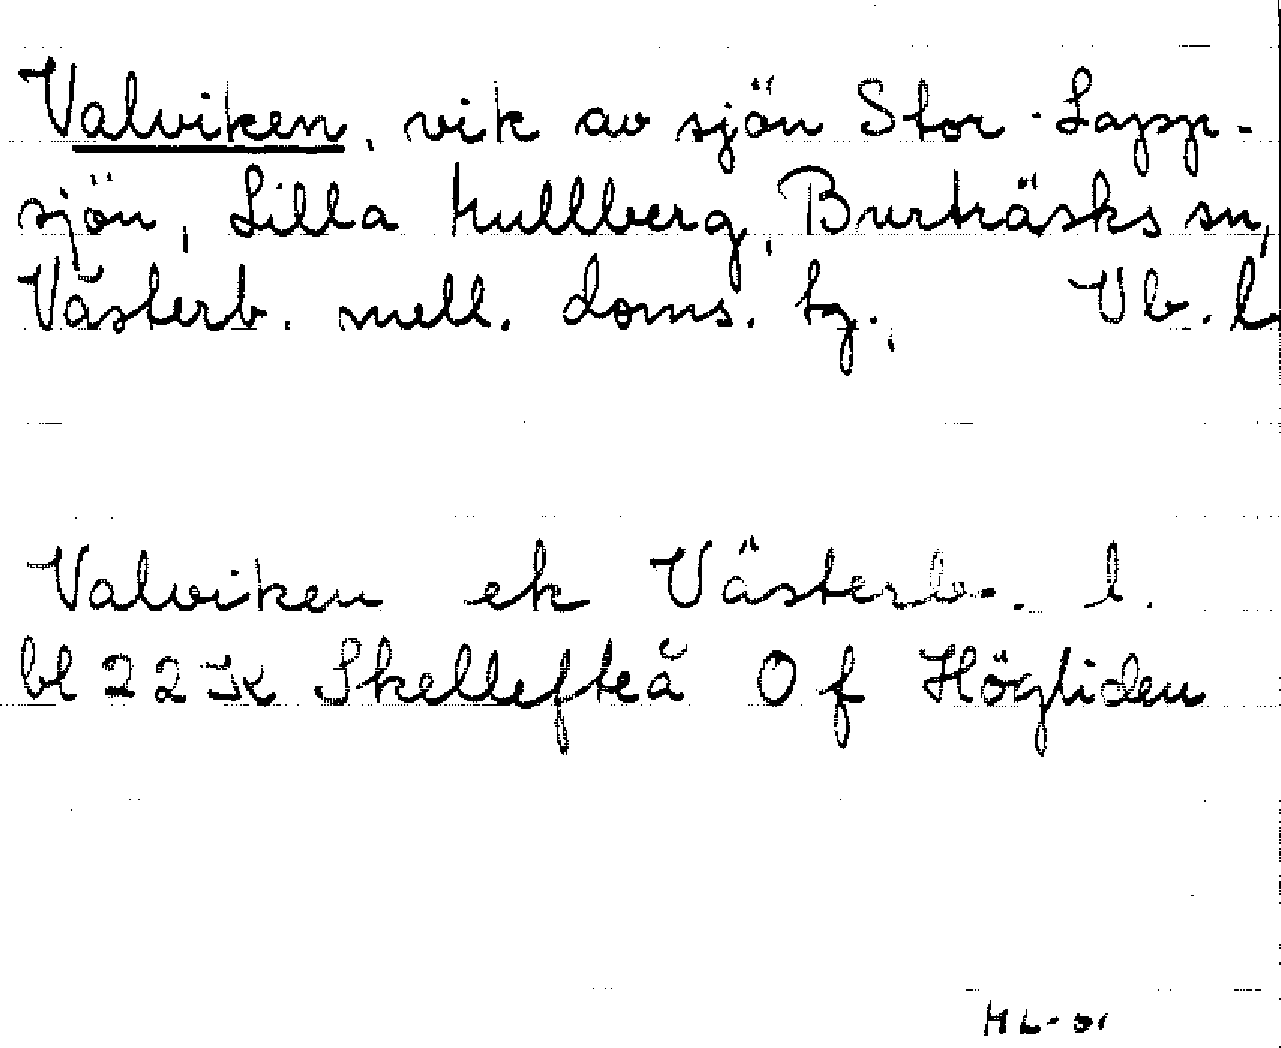 Valviken, vik av sjön Stor-Lapp-
sjön, Lilla Kullberg, Burträsks sn,
Västerb. mell. doms. tg., Vb. l
Valviken ek Västerb. l.
bl 22 K Skellefteå 0 f Högliden